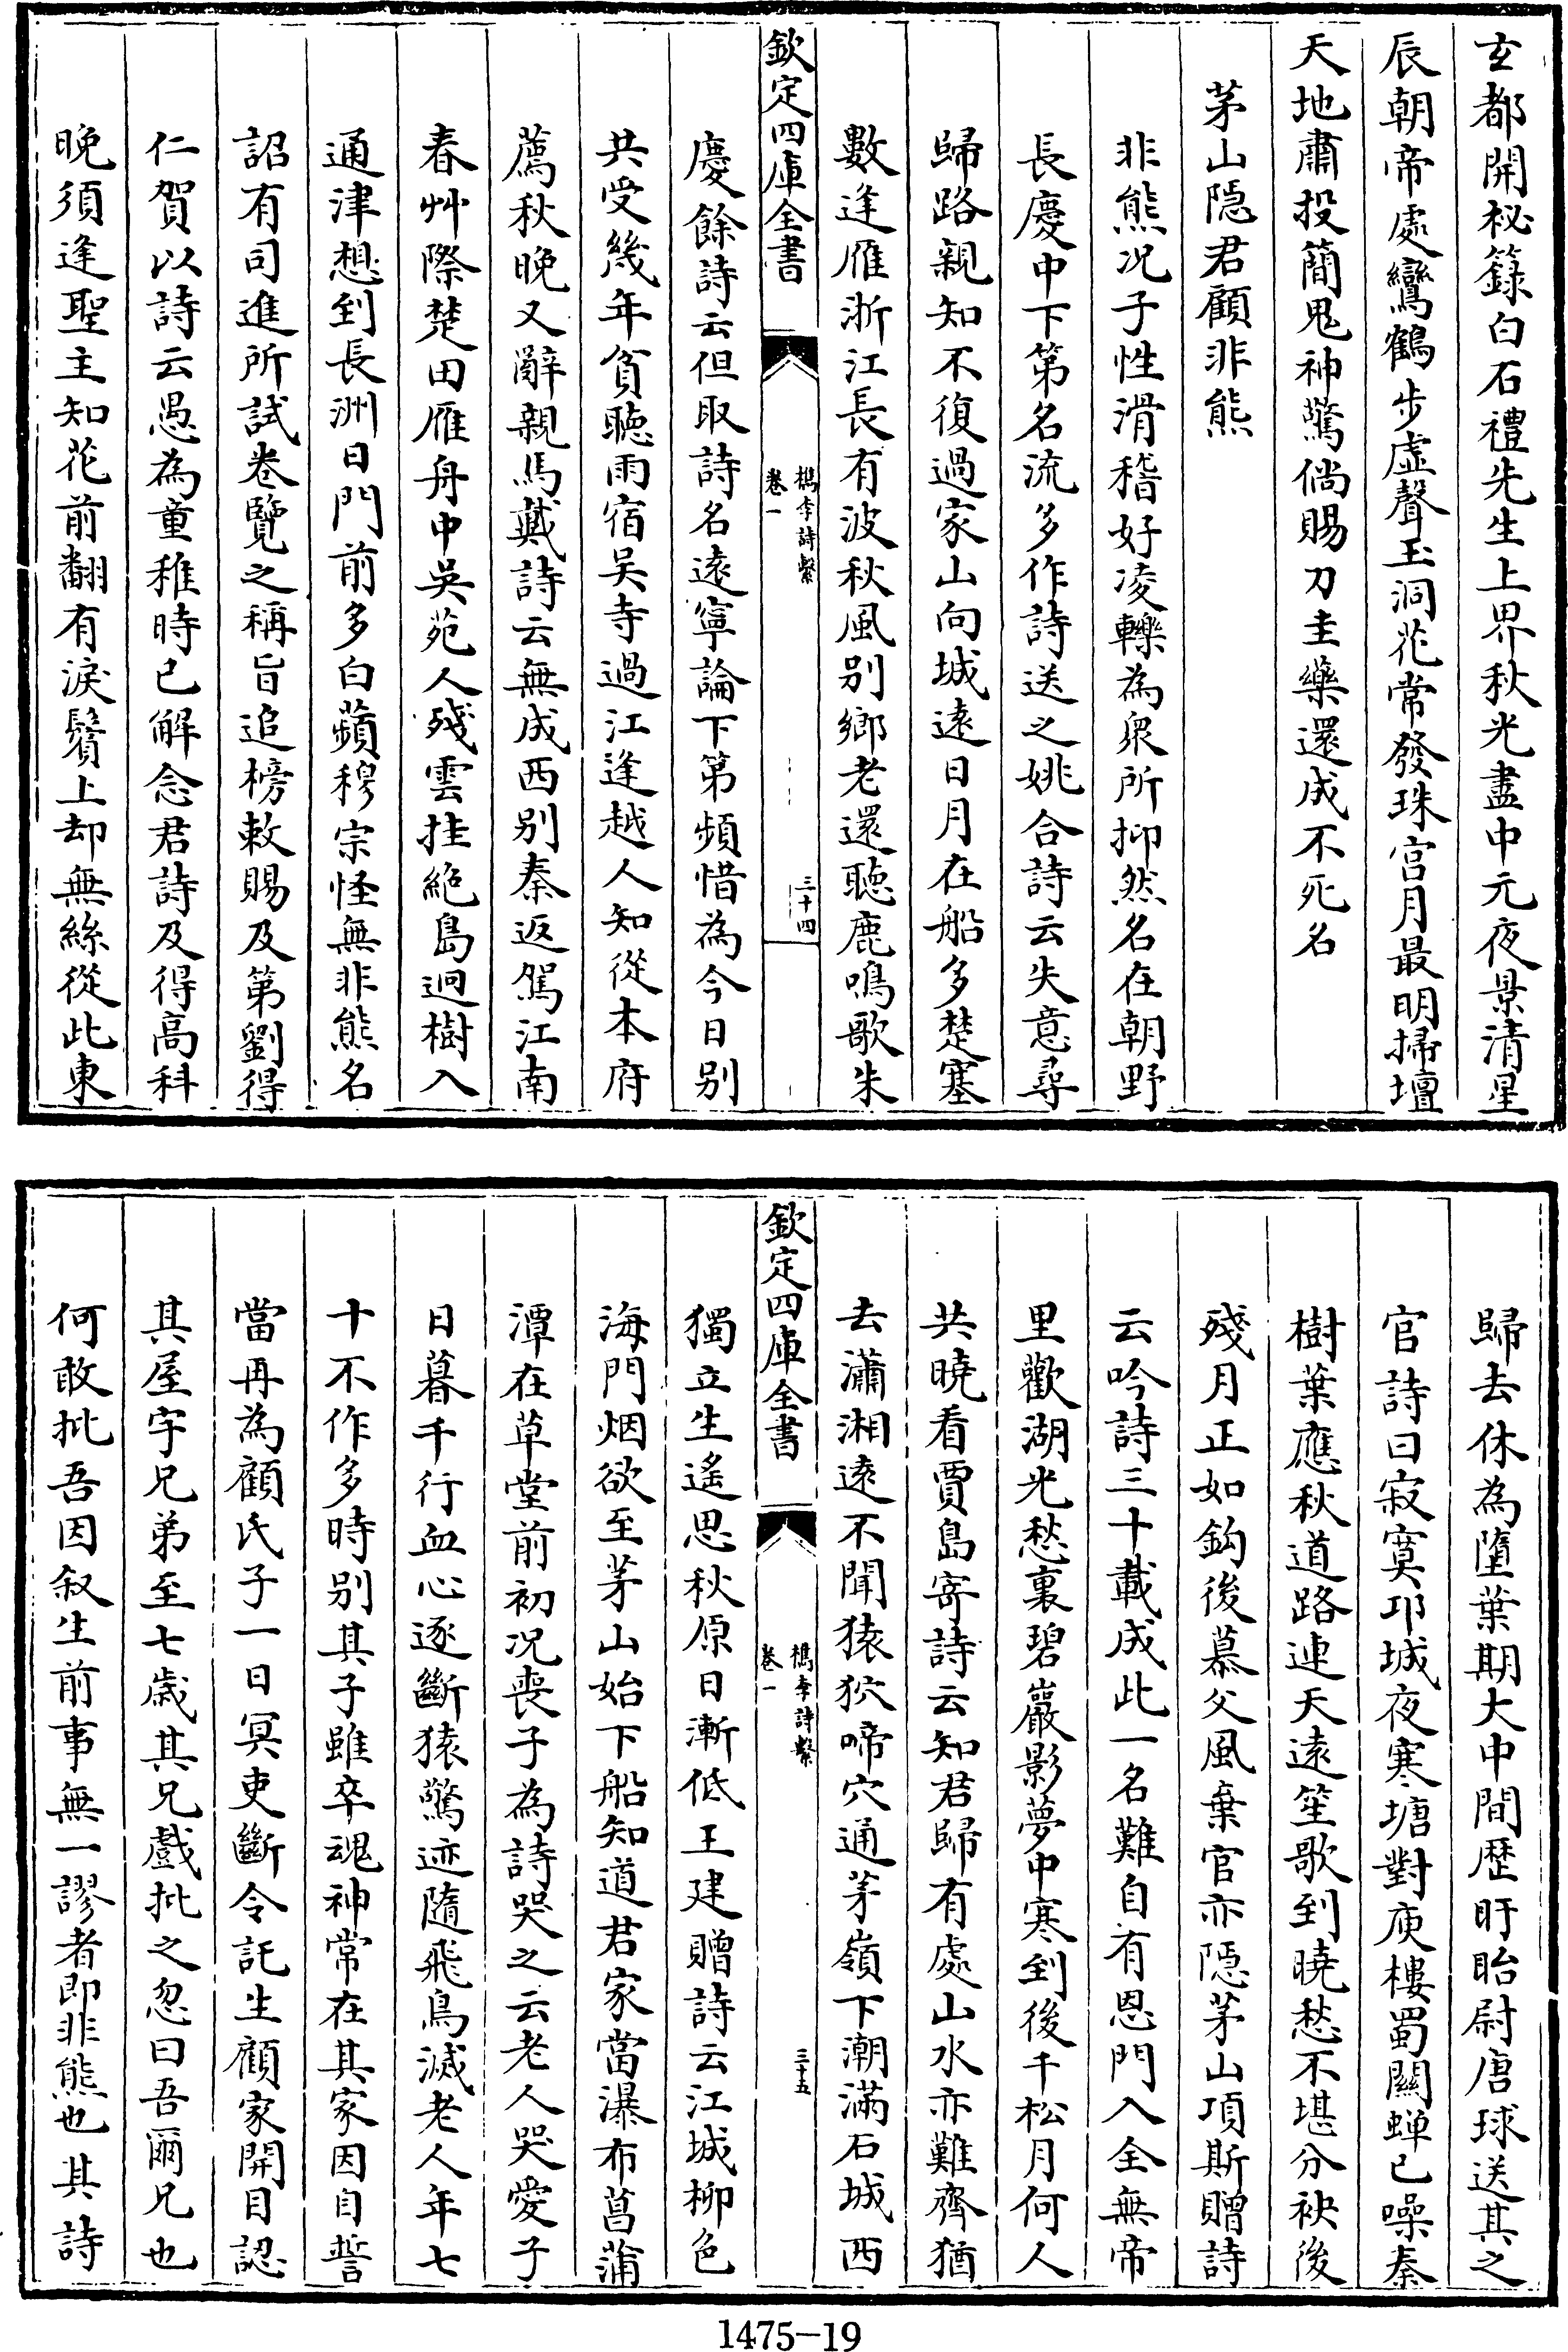 玄都開祕籙白石禮先生上界秋光盡中元夜景清星
辰朝帝處鸞鶴步虛聲玉洞花常發珠宮月最明掃壇
天地肅投簡鬼神驚倘賜刀圭藥還成不死名
茅山隱君顧非熊
非熊况子性滑稽好凌轢為衆所抑然名在朝野
長慶中下第名流多作詩送之姚合詩云失意尋
歸路親知不復過家山向城遠日月在船多楚塞
數逢雁浙江長有波秋風别鄉老還聽鹿鳴歌朱
欽定四庫全書
檇李詩繫
卷一
三十四
慶餘詩云但取詩名遠寧論下第頻惜為今日别
共受幾年貧聽雨宿吴寺過江逢越人知從本府
薦秋晚又辭親馬戴詩云無成西别秦返駕江南
春艸際楚田雁舟中吳苑人殘雲挂絶島迥樹入
通津想到長洲日門前多白蘋穆宗怪無非熊名
詔有司進所試卷覽之稱旨追榜敕賜及第劉得
仁賀以詩云愚為童稚時已解念君詩及得高科
晚須逢聖主知花前翻有淚鬢上却無絲從此東
歸去休為墮葉期大中間歷盱眙尉唐球送其之
官詩曰寂寞邛城夜寒塘對庾樓蜀關蟬已噪秦
樹葉應秋道路連天遠笙歌到曉愁不堪分袂後
殘月正如鈎後慕父風棄官亦隱茅山項斯贈詩
云吟詩三十載成此一名難自有恩門入全無帝
里歡湖光愁裏碧巖影夢中寒到後千松月何人
共曉看賈島寄詩云知君歸有處山水亦難齊猶
去瀟湘遠不聞猿狖啼穴通茅嶺下潮滿石城西
欽定四庫全書
檇李詩繫
卷一
三十五
獨立生遙思秋原日漸低王建贈詩云江城柳色
海門烟欲至茅山始下船知道君家當瀑布菖蒲
潭在草堂前初况喪子為詩哭之云老人哭愛子
日暮千行血心逐斷猿驚迹隨飛鳥滅老人年七
十不作多時别其子雖卒魂神常在其家因自誓
當再為顧氏子一日冥吏斷令託生顧家開目認
其屋宇兄弟至七歳其兄戲批之忽曰吾爾兄也
何敢批吾因叙生前事無一謬者即非熊也其詩
1475-19